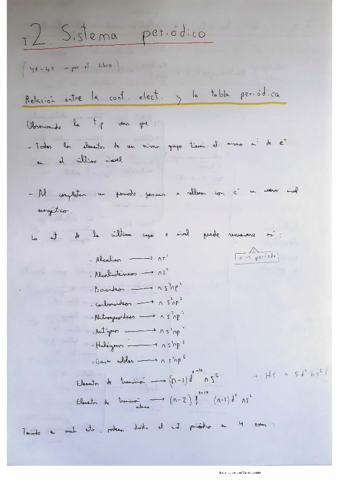 T2 Sistema periódico
Relación entre la conf. elect. y la tabla periódica
Observando la t.p vemos que:
- Todos los elementos de un mismo grupo tienen el mismo nº de e⁻
en el último nivel
- Al completar un periodo a con e⁻ un nuevo nivel
energético.
La de la última capa o nivel puede resumirse así:
n = periodo
· Alcalinos → ns¹
· Alcalinotérreos → ns²
· Boroideos → ns²np¹
· Carbonoideos → ns²np²
· Nitrogenoideos → ns²np³
· Anfígenos → ns²np⁴
· Halógenos → ns²np⁵
· Gases nobles → ns²np⁶
Elementos de transición → (n-1)d¹⁻¹⁰ ns²
Elementos de transición interna → (n-2)f (n-1)d ns²
Teniendo en cuenta esto, podemos dividir el sist. periódico en 4 zonas: